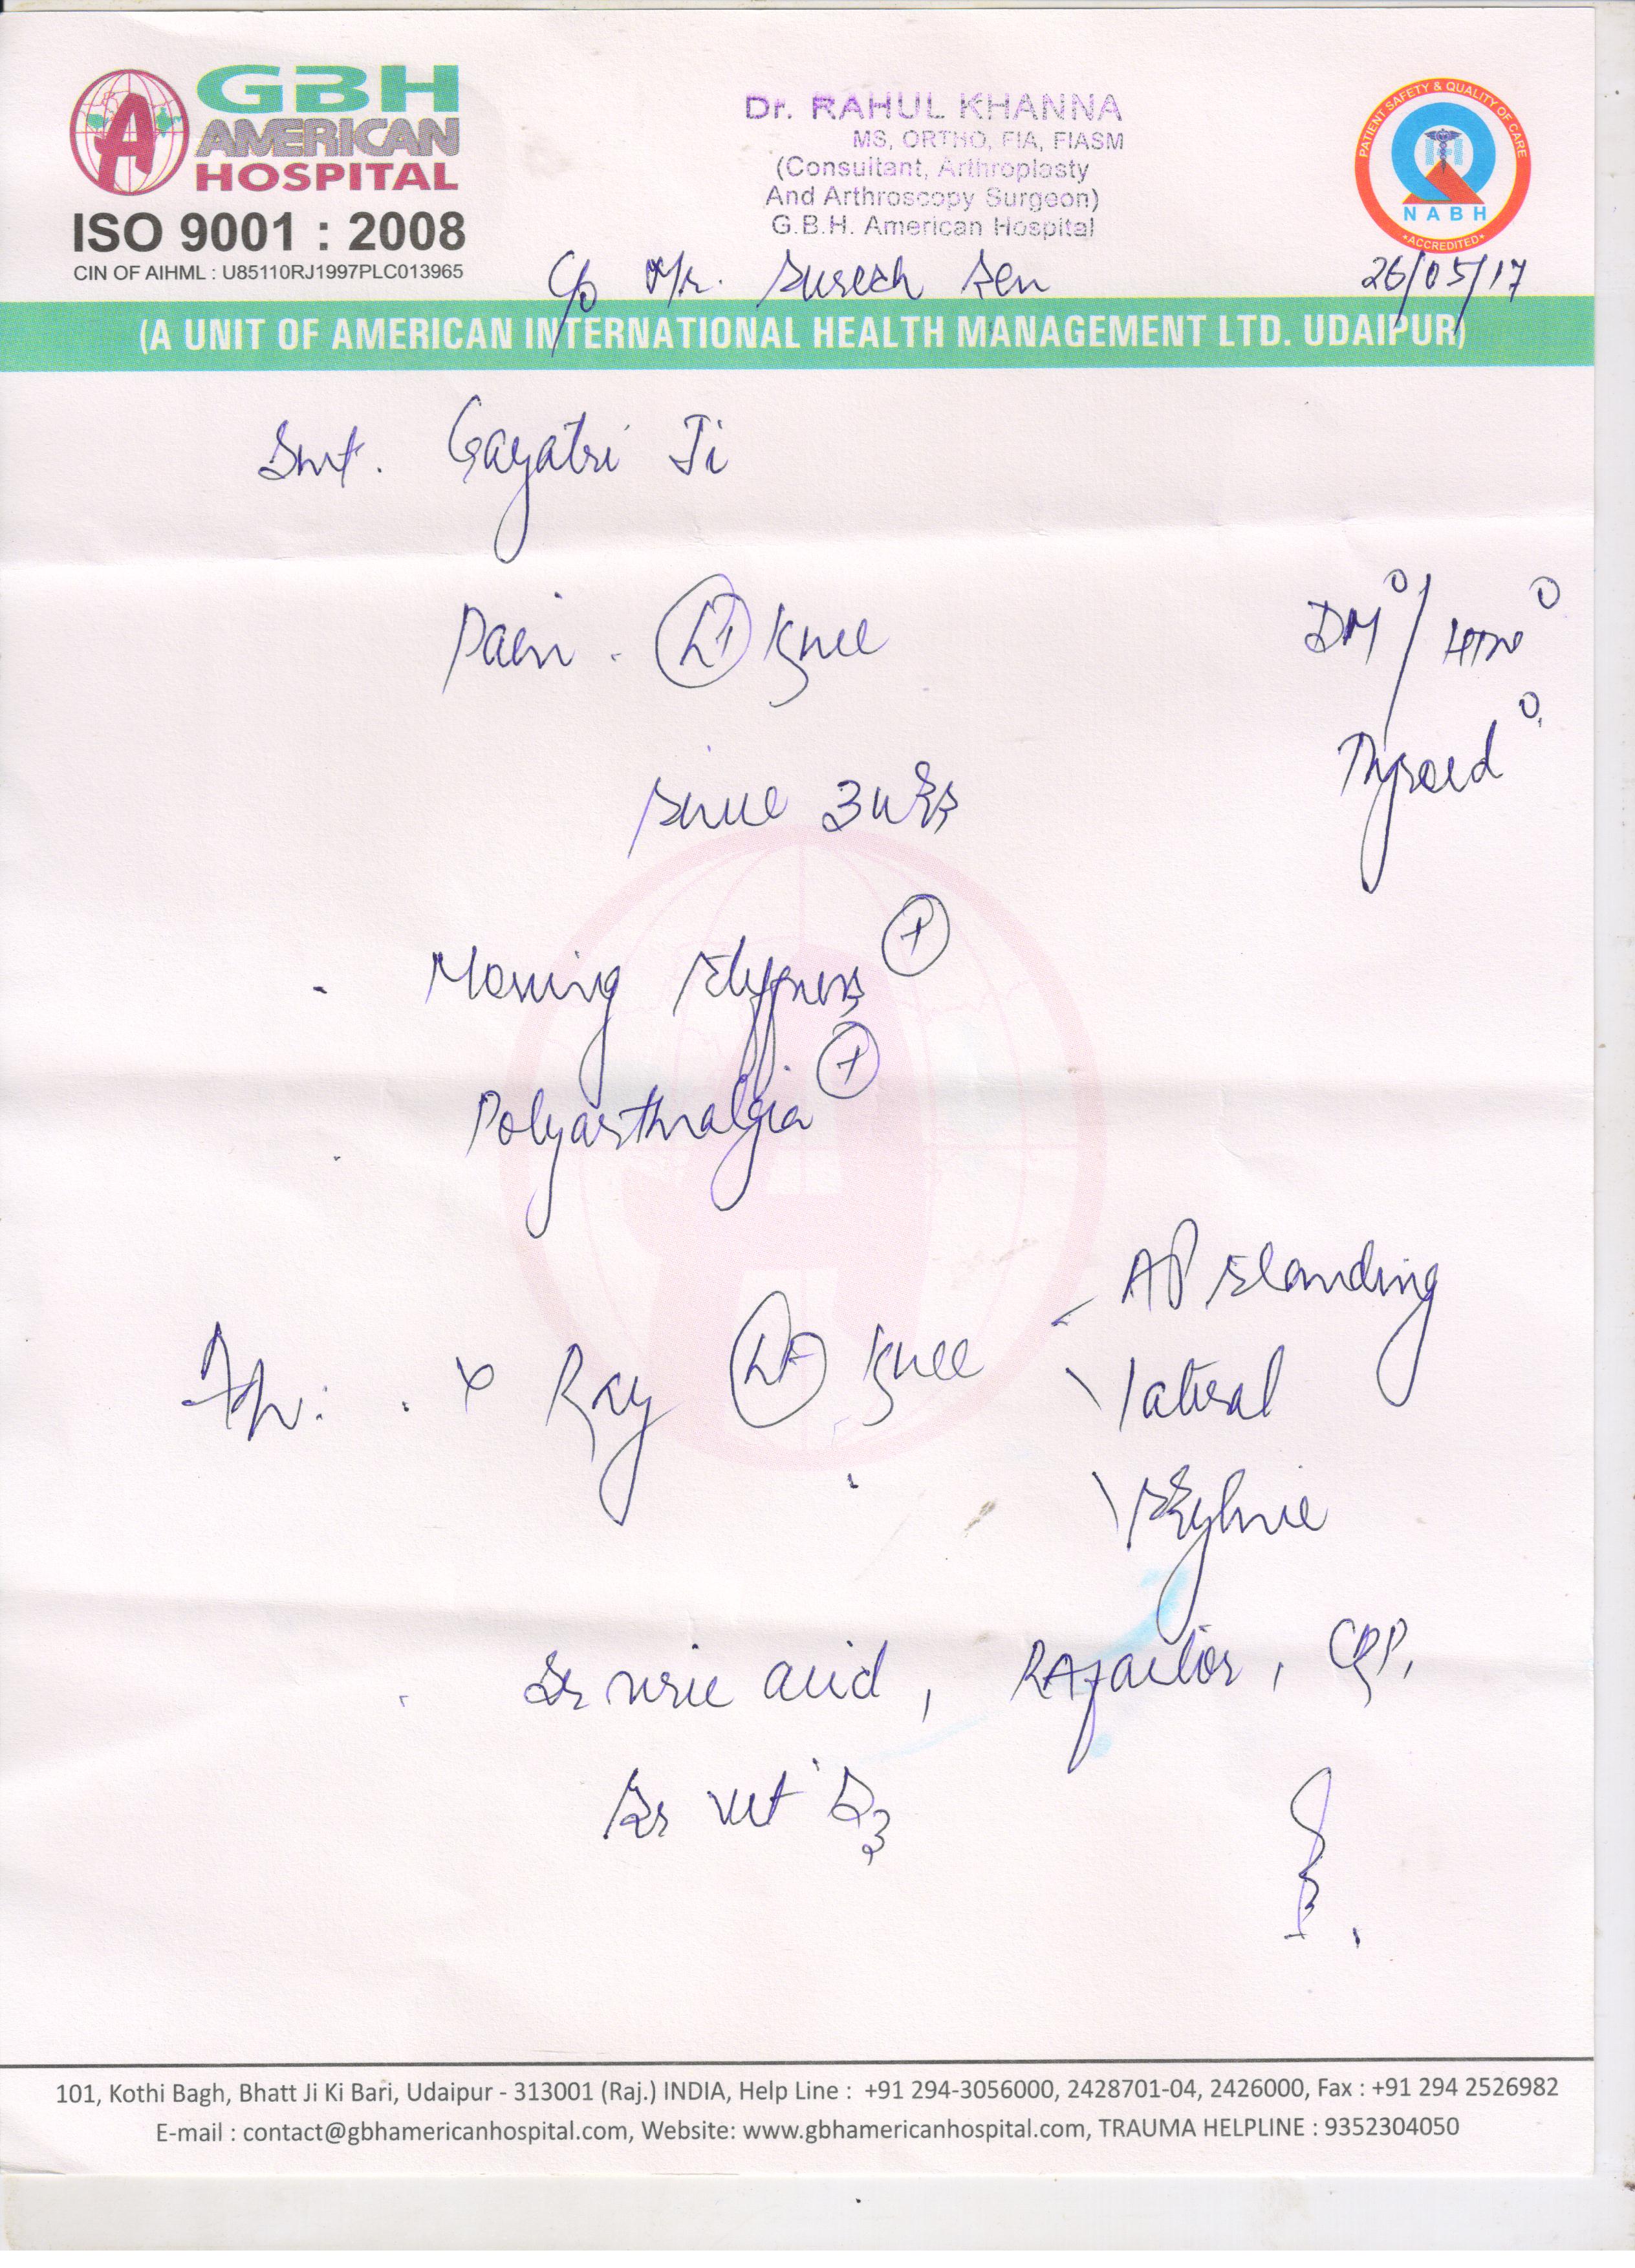 GBH
AMERICAN
HOSPITAL
ISO 9001 : 2008
CIN OF AIHML : U85110RJ1997PLC013965
Dr. RAHUL KHANNA
MS, ORTHO, FIA, FIASM
(Consultant, Arthroplasty
And Arthroscopy Surgeon)
G.B.H. American Hospital
PATIENT SAFETY & QUALITY OF CARE
NABH
ACCREDITED
C/o Mr. Suresh Sen
26/05/17
(A UNIT OF AMERICAN INTERNATIONAL HEALTH MANAGEMENT LTD. UDAIPUR)
Smt. Gayatri Ji
Pain - Lt Knee
DM° / HTN°
since 3 wks
Thyroid°
- Morning stiffness +
Polyarthralgia +
AP standing
Adv: . X Ray Lt Knee
lateral
skyline
Sr uric acid, RA factor, CRP,
Sr vit D3
101, Kothi Bagh, Bhatt Ji Ki Bari, Udaipur - 313001 (Raj.) INDIA, Help Line : +91 294-3056000, 2428701-04, 2426000, Fax : +91 294 2526982
E-mail : contact@gbhamericanhospital.com, Website: www.gbhamericanhospital.com, TRAUMA HELPLINE : 9352304050